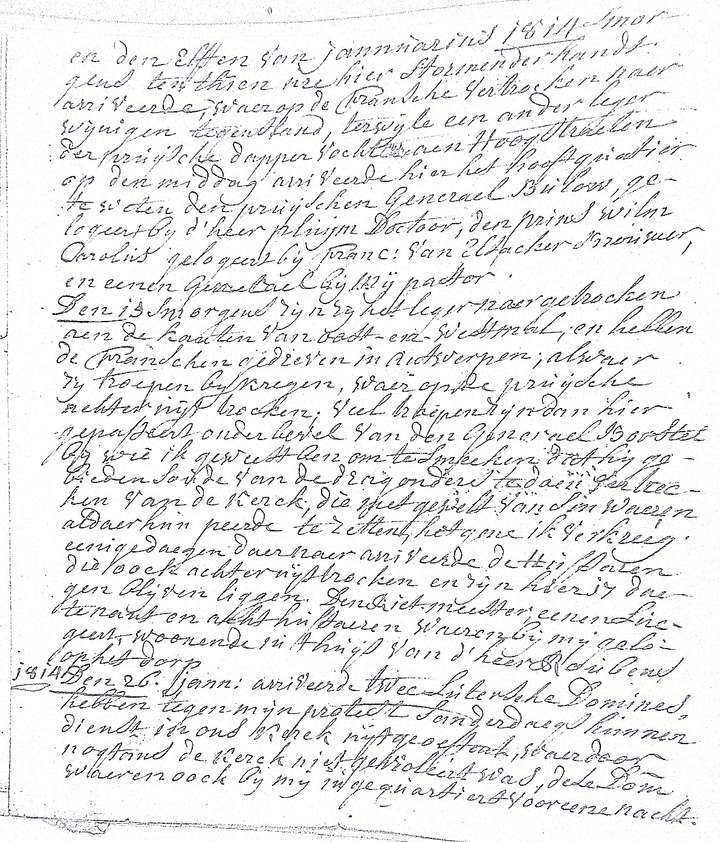 en den Elffen van jannuarius 1814 smor
gens ten thien ure hier stormenderhands
arriveerde, waerop de Fransche vertrocken naer
wijnigen tegenstand, terwyle een ander leger
der pruysche dapper vocht aen Hoogstraeten
op den middag arriveerde hier het hooftquatier
te weten den pruyschen Generael Bulow, ge-
logeert by d'heer pluym Doctoor, den prins wilm
Carolus gelogeert bij Franc: van Elsacker Brouwer,
en eenen Generael bij mij pastor.
Den 13 smorgens zijn zy het leger naer getrocken
aen de kanten van oost-en-westmal, en hebben
de Franschen gedreven in antwerpen; alwaer
zy troepen by kregen, waer op de pruysche
achteruijt trocken. veel troepen zyn dan hier
gepasseert onder bevel van den Generael Borstel
by wie ik geweest ben om te smeeken dat hy ge-
bieden soude van de dragonders te doen vertrec-
ken van de Kerck, die met gewelt van sin waeren
aldaer hun peerde te zetten, het gene ik verkreeg.
eenige daegen daer naer arriveerde de Hussaren
die oock achteruijt trocken en zyn hier 17 dae-
gen blyven liggen. Den Rietmeester, eenen Lue-
tenant en acht hussaeren waeren bij mij gelo-
geert, woonende in t huys van d'heer Lubens
op het dorp
1814 Den 26. Jann: arriveerde twee Lutersche Domines,
hebben tegen mijn protest sanderdaegs hunnen
dienst in ons Kerck uytgeoeffent, waerdoor
nogtans de Kerck niet gevioleert was, dese Dom
waeren oock bij mij ingequartiert voor eene nacht.